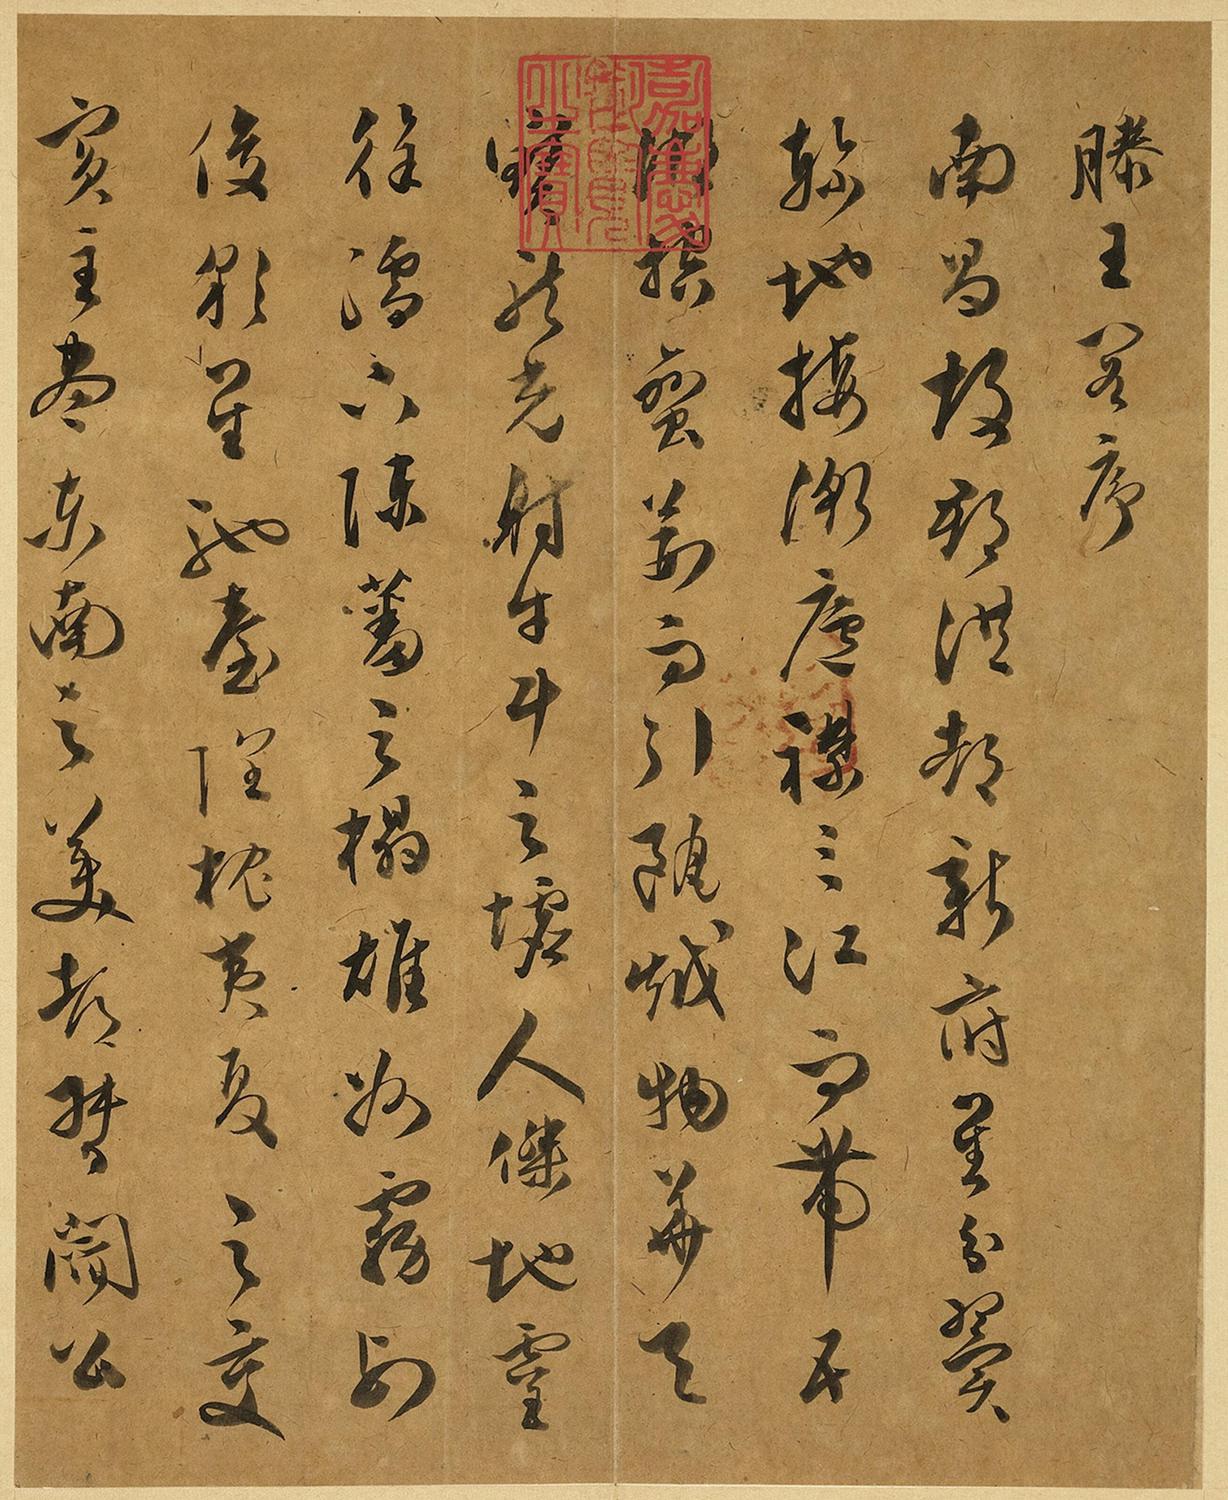 滕王閣序
南昌故郡洪都新府星分翼
軫地接衡廬襟三江而帶五
湖控蠻荊而引甌越物華天
寶龍光射牛斗之墟人傑地靈
徐孺下陳蕃之榻雄州霧列
俊彩星馳臺隍枕夷夏之交
賓主盡東南之美都督閻公
嘉慶
御覽
之寶